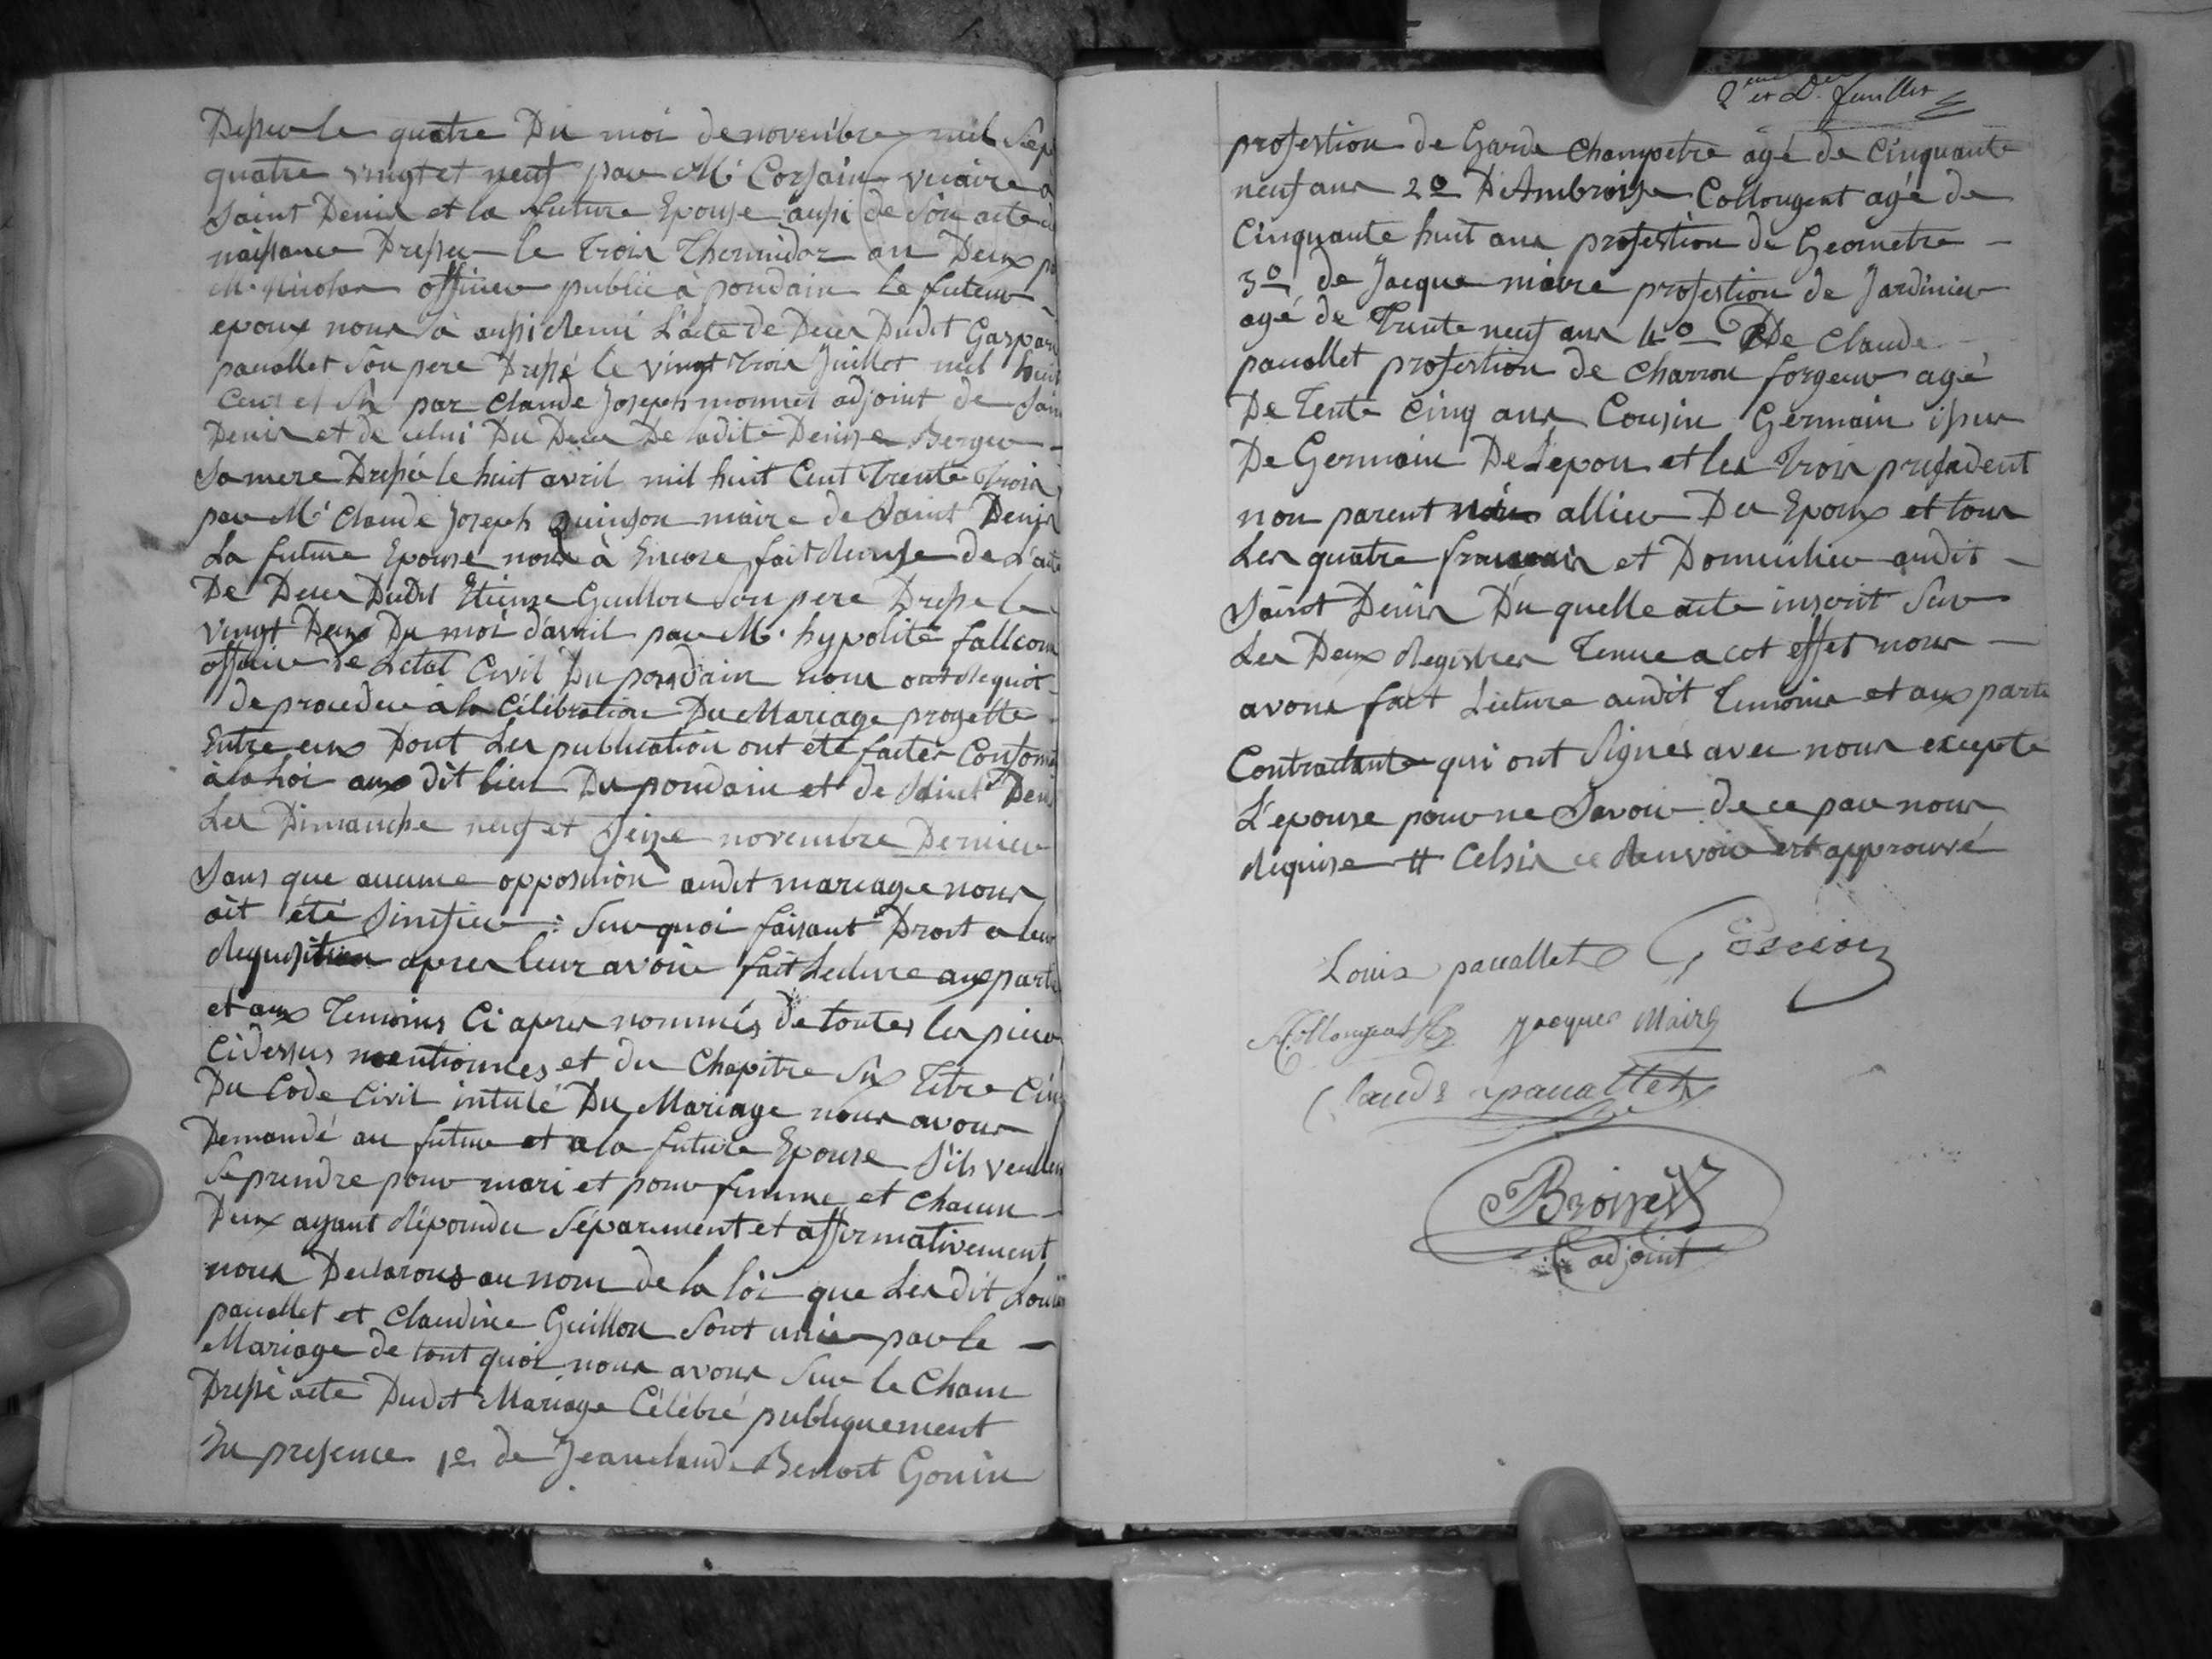 Dressee le quatre Du moi de novembre mil Sept
quatre vingt et neuf par Mr Corsain vicaire à
Saint Denis et la future Epouse aussi de Son acte de
naissance Dressee le Trois Thermidor an Deux par
Mr officier publie à poudain le futeur
epoux nous à aussi remi L'acte de Deces Dudit Gaspard
pauallet Son pere Dressé le vingt Trois Juillet mil huit
Cent et Six par Claude Joseph monnet adjoint de Saint
Denis et de celui Du Deces De ladite Denise Berger
Sa mere Dressé le huit avril mil huit Cent Trente Trois
par Mr Claude Joseph Quinson maire de Saint Denis
La future Epouse nous à Encore fait remise de L'acte
De Deces Dudit Etienne Guillon Son pere Dresse le
vingt Deux Du moi d'avril par Mr hypolite fallcom
officier de Letat Civil Du poudain nous ont requit
de proceder à la Célébration Du Mariage progette
Entre eux Dont Les publication ont été faites Conform
à la Loi aux dit lieux Du poudain et de Saint Denis
Les Dimanche neuf et Seize novembre Dernier
Sans que aucune opposition audit mariage nous
ait été Sinifier : Sur quoi faisant Droit a leur
requisition apres leur avoir fait Lecture aux parti
et aux Temoins Ci apres nommés de toutes les pieces
Cidessus mentionnes et du Chapitre Six Titre Cinq
Du Code Civil intulé Du Mariage nous avons
Demandé au futur et a la future Epouse S'ils veullen
Se prendre pour mari et pour femme et chacun
Deux ayant répondu Séparement et affirmativement
nous Declarons au nom de la loi que Les dit Louis
pauallet et Claudine Guillon Sont unie par le
Mariage de tout quoi nous avons Sur le Cham
Dressé acte Dudit Mariage Célébré publiquement
En presence 1o de Jean claude Benoit Gonin
2eme et Der feuillet
profession de Garde Champetre agé de Cinquante
neuf ans 2o D'Ambroise Collongeat agé de
Cinquante huit ans profession de Geometre
3o de Jacque maire profession de Jardinier
agé de Trente neuf ans 4o De Claude
pauallet profession de charron forgeur agé
De Tente Cinq ans Cousin Germain issu
De Germain De Lepou et les Trois presedent
non parent allier Des Epoux et tous
Les quatre français et Domicilier audit
Saint Denis Du quelle acte inscrit Sur
Les Deux Registres Tenue a cet effet nous
avons fait Lecture audit Temoins et aux parti
Contractante qui ont Signés avec nous excepté
L'epouse pour ne Savoir de ce par nous
réquise # Celsis ce renvoir est approuvé
Louis pauallet
Collongeat Jacques Maire
Claude pauallet
Broisset
adjoint